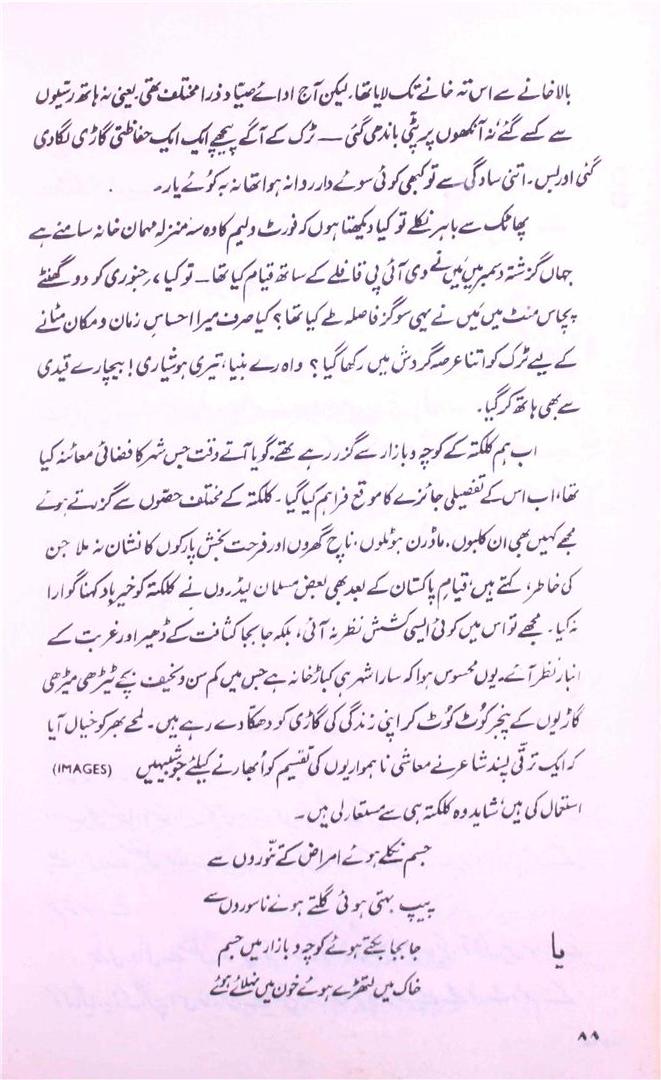 بالا خانے سے اس تہ خانے تک لایا تھا۔ لیکن آج ادائے صیّاد ذرا مختلف تھی یعنی نہ ہاتھ رسّیوں
سے کسے گئے نہ آنکھوں پر پٹّی باندھی گئی — ٹرک کے آگے پیچھے ایک ایک حفاظتی گاڑی لگا دی
گئی اور بس۔ اتنی سادگی سے تو کبھی کوئی سوئے دار روانہ ہوا تھا نہ بہ کوئے یار۔
پھاٹک سے باہر نکلے تو کیا دیکھتا ہوں کہ فورٹ ولیم کا وہ سہ منزلہ مہمان خانہ سامنے ہے
جہاں گزشتہ دسمبر میں مَیں نے وی آئی پی قافلے کے ساتھ قیام کیا تھا — تو کیا ۷؍ جنوری کو دو گھنٹے
پچاس منٹ میں مَیں نے یہی سو گز فاصلہ طے کیا تھا؟ کیا صرف میرا احساسِ زمان و مکان مٹانے
کے لیے ٹرک کو اتنا عرصہ گردش میں رکھا گیا؟ واہ رے بنیا، تیری ہوشیاری! بیچارے قیدی
سے بھی ہاتھ کر گیا۔
اب ہم کلکتہ کے کوچہ و بازار سے گزر رہے تھے۔ گویا آتے وقت جس شہر کا فضائی معائنہ کیا
تھا، اب اس کے تفصیلی جائزے کا موقع فراہم کیا گیا۔ کلکتہ کے مختلف حصّوں سے گزرتے ہوئے
مجھے کہیں بھی ان کلبوں، ماڈرن ہوٹلوں، ناچ گھروں اور فرحت بخش پارکوں کا نشان نہ ملا جن
کی خاطر، کہتے ہیں، قیامِ پاکستان کے بعد بھی بعض مسلمان لیڈروں نے کلکتہ کو خیرباد کہنا گوارا
نہ کیا۔ مجھے تو اس میں کوئی ایسی کشش نظر نہ آئی، بلکہ جا بجا کثافت کے ڈھیر اور غربت کے
انبار نظر آئے۔ یوں محسوس ہوا کہ سارا شہر ہی کباڑ خانہ ہے جس میں کم سن و نحیف بچے ٹیڑھی میڑھی
گاڑیوں کے پنجر کوٹ کوٹ کر اپنی زندگی کی گاڑی کو دھکا دے رہے ہیں۔ لمحے بھر کو خیال آیا
کہ ایک ترقی پسند شاعر نے معاشی ناہمواریوں کی تقسیم کو اُبھارنے کیلئے جو شبیہیں (IMAGES)
استعمال کی ہیں، شاید وہ کلکتہ ہی سے مستعار لی ہیں۔
جسم نکلے ہوئے امراض کے تنّوروں سے
پیپ بہتی ہوئی گلتے ہوئے ناسوروں سے
یا جا بجا بکتے ہوئے کوچہ و بازار میں جسم
خاک میں لتھڑے ہوئے خون میں نہلائے ہوئے
۸۸